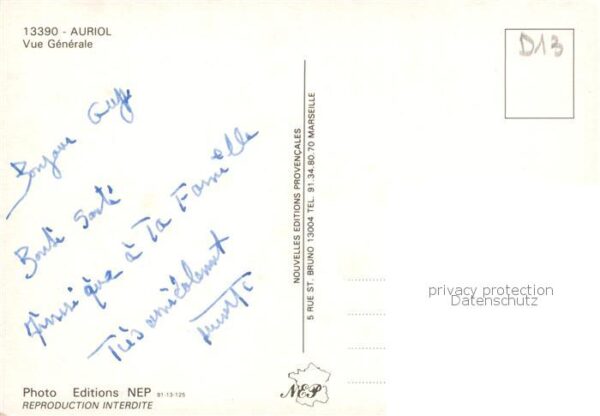 13390 - AURIOL
Vue Générale
D13
Bonjour Guy
Bonne Santé
Ainsi que à Ta Famille
Très amicalement
NOUVELLES EDITIONS PROVENÇALES
5 RUE ST. BRUNO 13004 TEL. 91.34.80.70 MARSEILLE
privacy protection
Datenschutz
NEP
Photo Editions NEP 81-13-125
REPRODUCTION INTERDITE